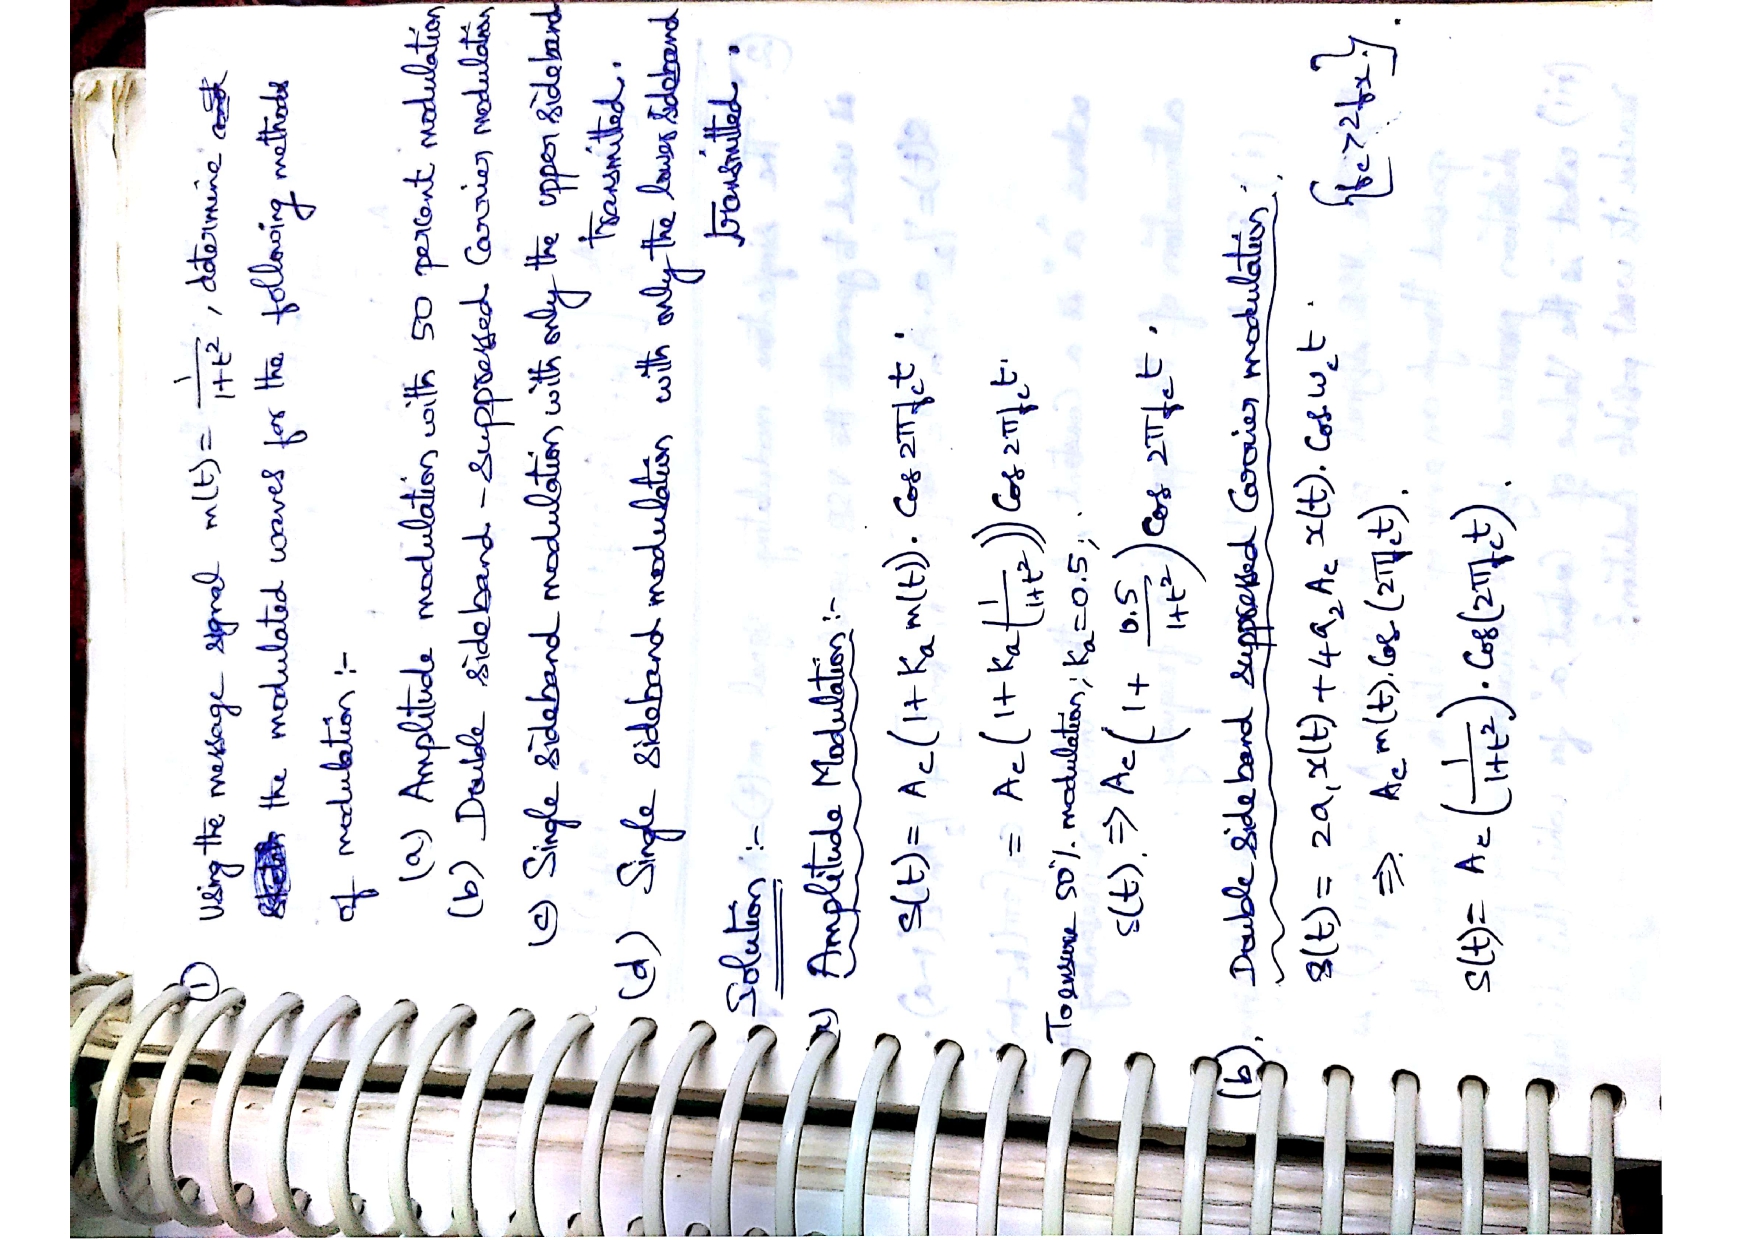 ① Using the message signal m(t) = 1/(1+t²), determine and
the modulated waves for the following methods
of modulation :-
(a) Amplitude modulation with 50 percent modulation
(b) Double sideband - suppressed Carrier modulation
(c) Single sideband modulation with only the upper sideband
transmitted.
(d) Single sideband modulation with only the lower sideband
transmitted.
Solution :-
a) Amplitude Modulation :-
S(t) = Ac (1 + Ka m(t)). Cos 2πfct.
= Ac (1 + Ka (1/(1+t²))) Cos 2πfct.
To ensure 50% modulation; Ka = 0.5;
S(t). ⇒ Ac (1 + 0.5/(1+t²)) Cos 2πfct.
(b). Double sideband suppressed Carrier modulation :.
S(t) = 2a₁x(t) + 4a₂ Ac x(t). Cos ωct. {fc > 2fx.}.
⇒. Ac m(t). Cos (2πfct).
S(t) = Ac (1/(1+t²)). Cos (2πfct).